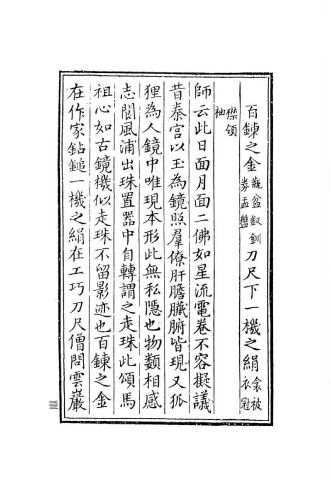 百鍊之金瓶盆釵釧券盂盤刀尺下一機之絹衾被衣冠
襟領袖
師云此日面月面二佛如星流電卷不容擬議
昔秦宮以玉為鏡照羣僚肝膽臟腑皆現又狐
狸為人鏡中唯現本形此無私隱也物類相感
志閬風浦出珠置器中自轉謂之走珠此頌馬
祖心如古鏡機似走珠不留影迹也百鍊之金
在作家鉆鎚一機之絹在工巧刀尺僧問雲巖